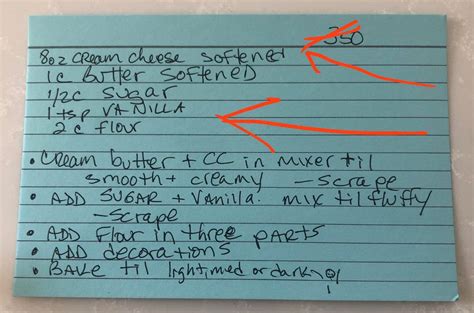 350
8oz cream cheese softened
1c butter softened
1/2c sugar
1 tsp VANILLA
2 c flour
• CREAM butter + CC in mixer til
smooth + creamy – scrape
• ADD SUGAR + Vanilla. mix til fluffy
– scrape
• ADD flour in three PARTS
• ADD decorations
• BAKE til light, med or dark